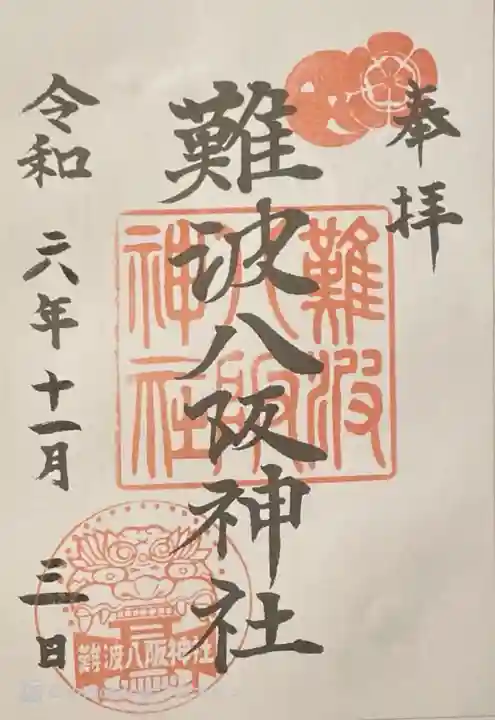 奉拝
難波八阪神社
難波八阪神社
令和 六年 十一月 三日
難波八阪神社